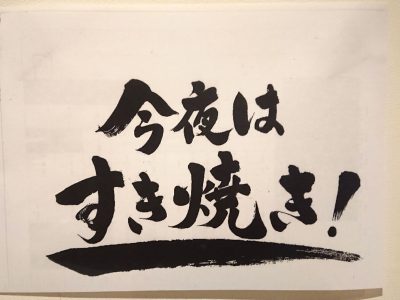 今夜は
すき焼き!